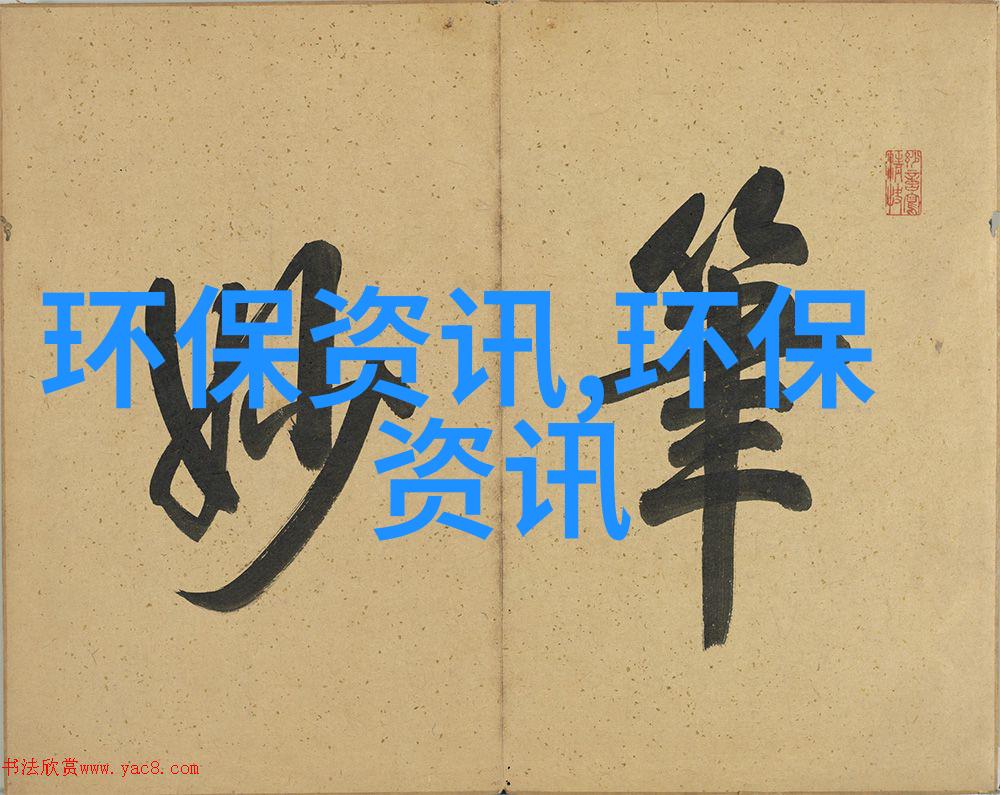 筆妙
环保资讯,环保
资讯
书法欣赏www.yac8.com